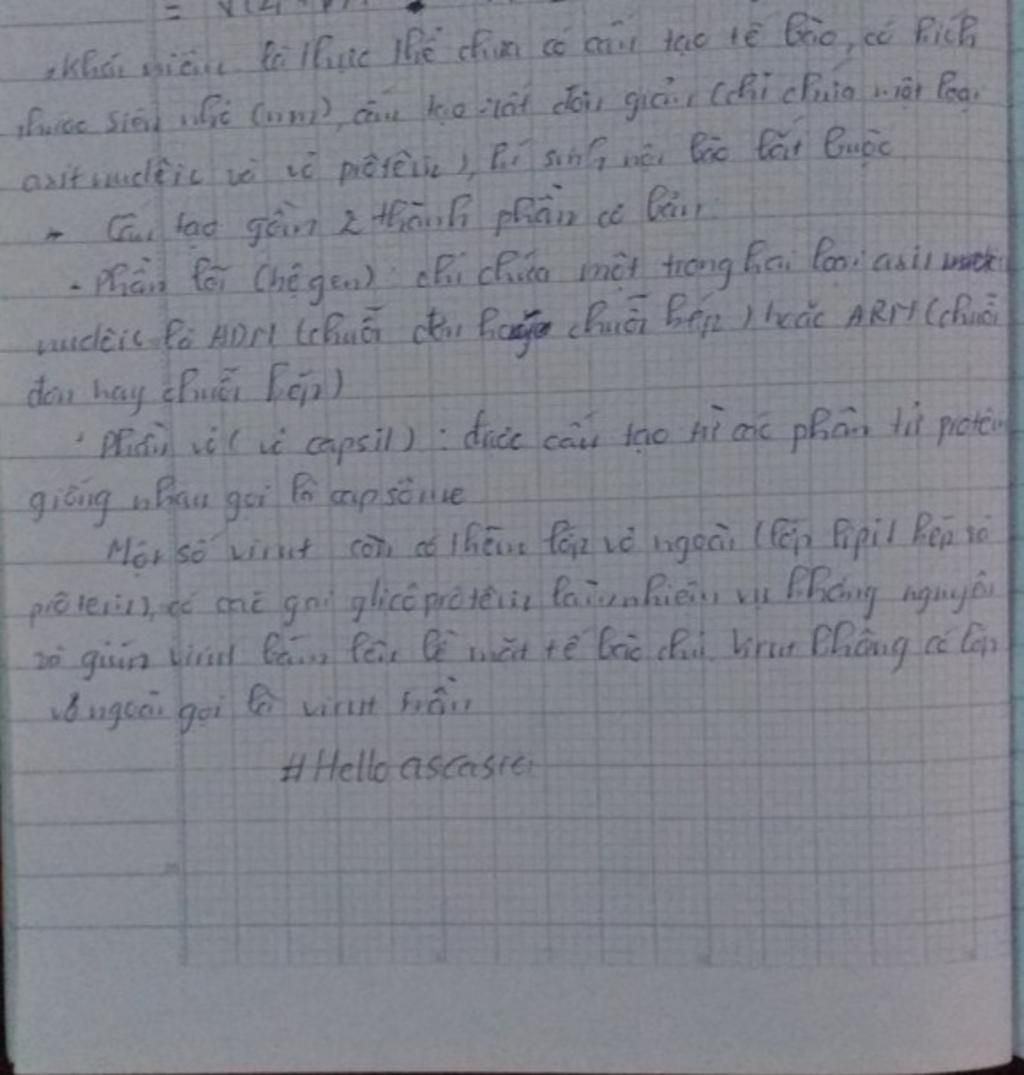 Khái niệm là thực thể chưa có cấu tạo tế bào, có kích
thước siêu nhỏ (nm), cấu tạo rất đơn giản (chỉ chứa một loại
axit nuclêic và vỏ prôtêin), kí sinh nội bào bắt buộc
- Cấu tạo gồm 2 thành phần cơ bản
- Phần lõi (hệ gen): chỉ chứa một trong hai loại axit
nuclêic là ADN (chuỗi đơn hoặc chuỗi kép) hoặc ARN (chuỗi
đơn hay chuỗi kép)
Phần vỏ (vỏ capsit): được cấu tạo từ các phân tử protein
giống nhau gọi là capsôme
Một số virut còn có thêm lớp vỏ ngoài (lớp lipit kép và
prôtêin), có các gai glicôprôtêin làm nhiệm vụ kháng nguyên
và giúp virut bám lên bề mặt tế bào chủ. Virut không có lớp
vỏ ngoài gọi là virut trần